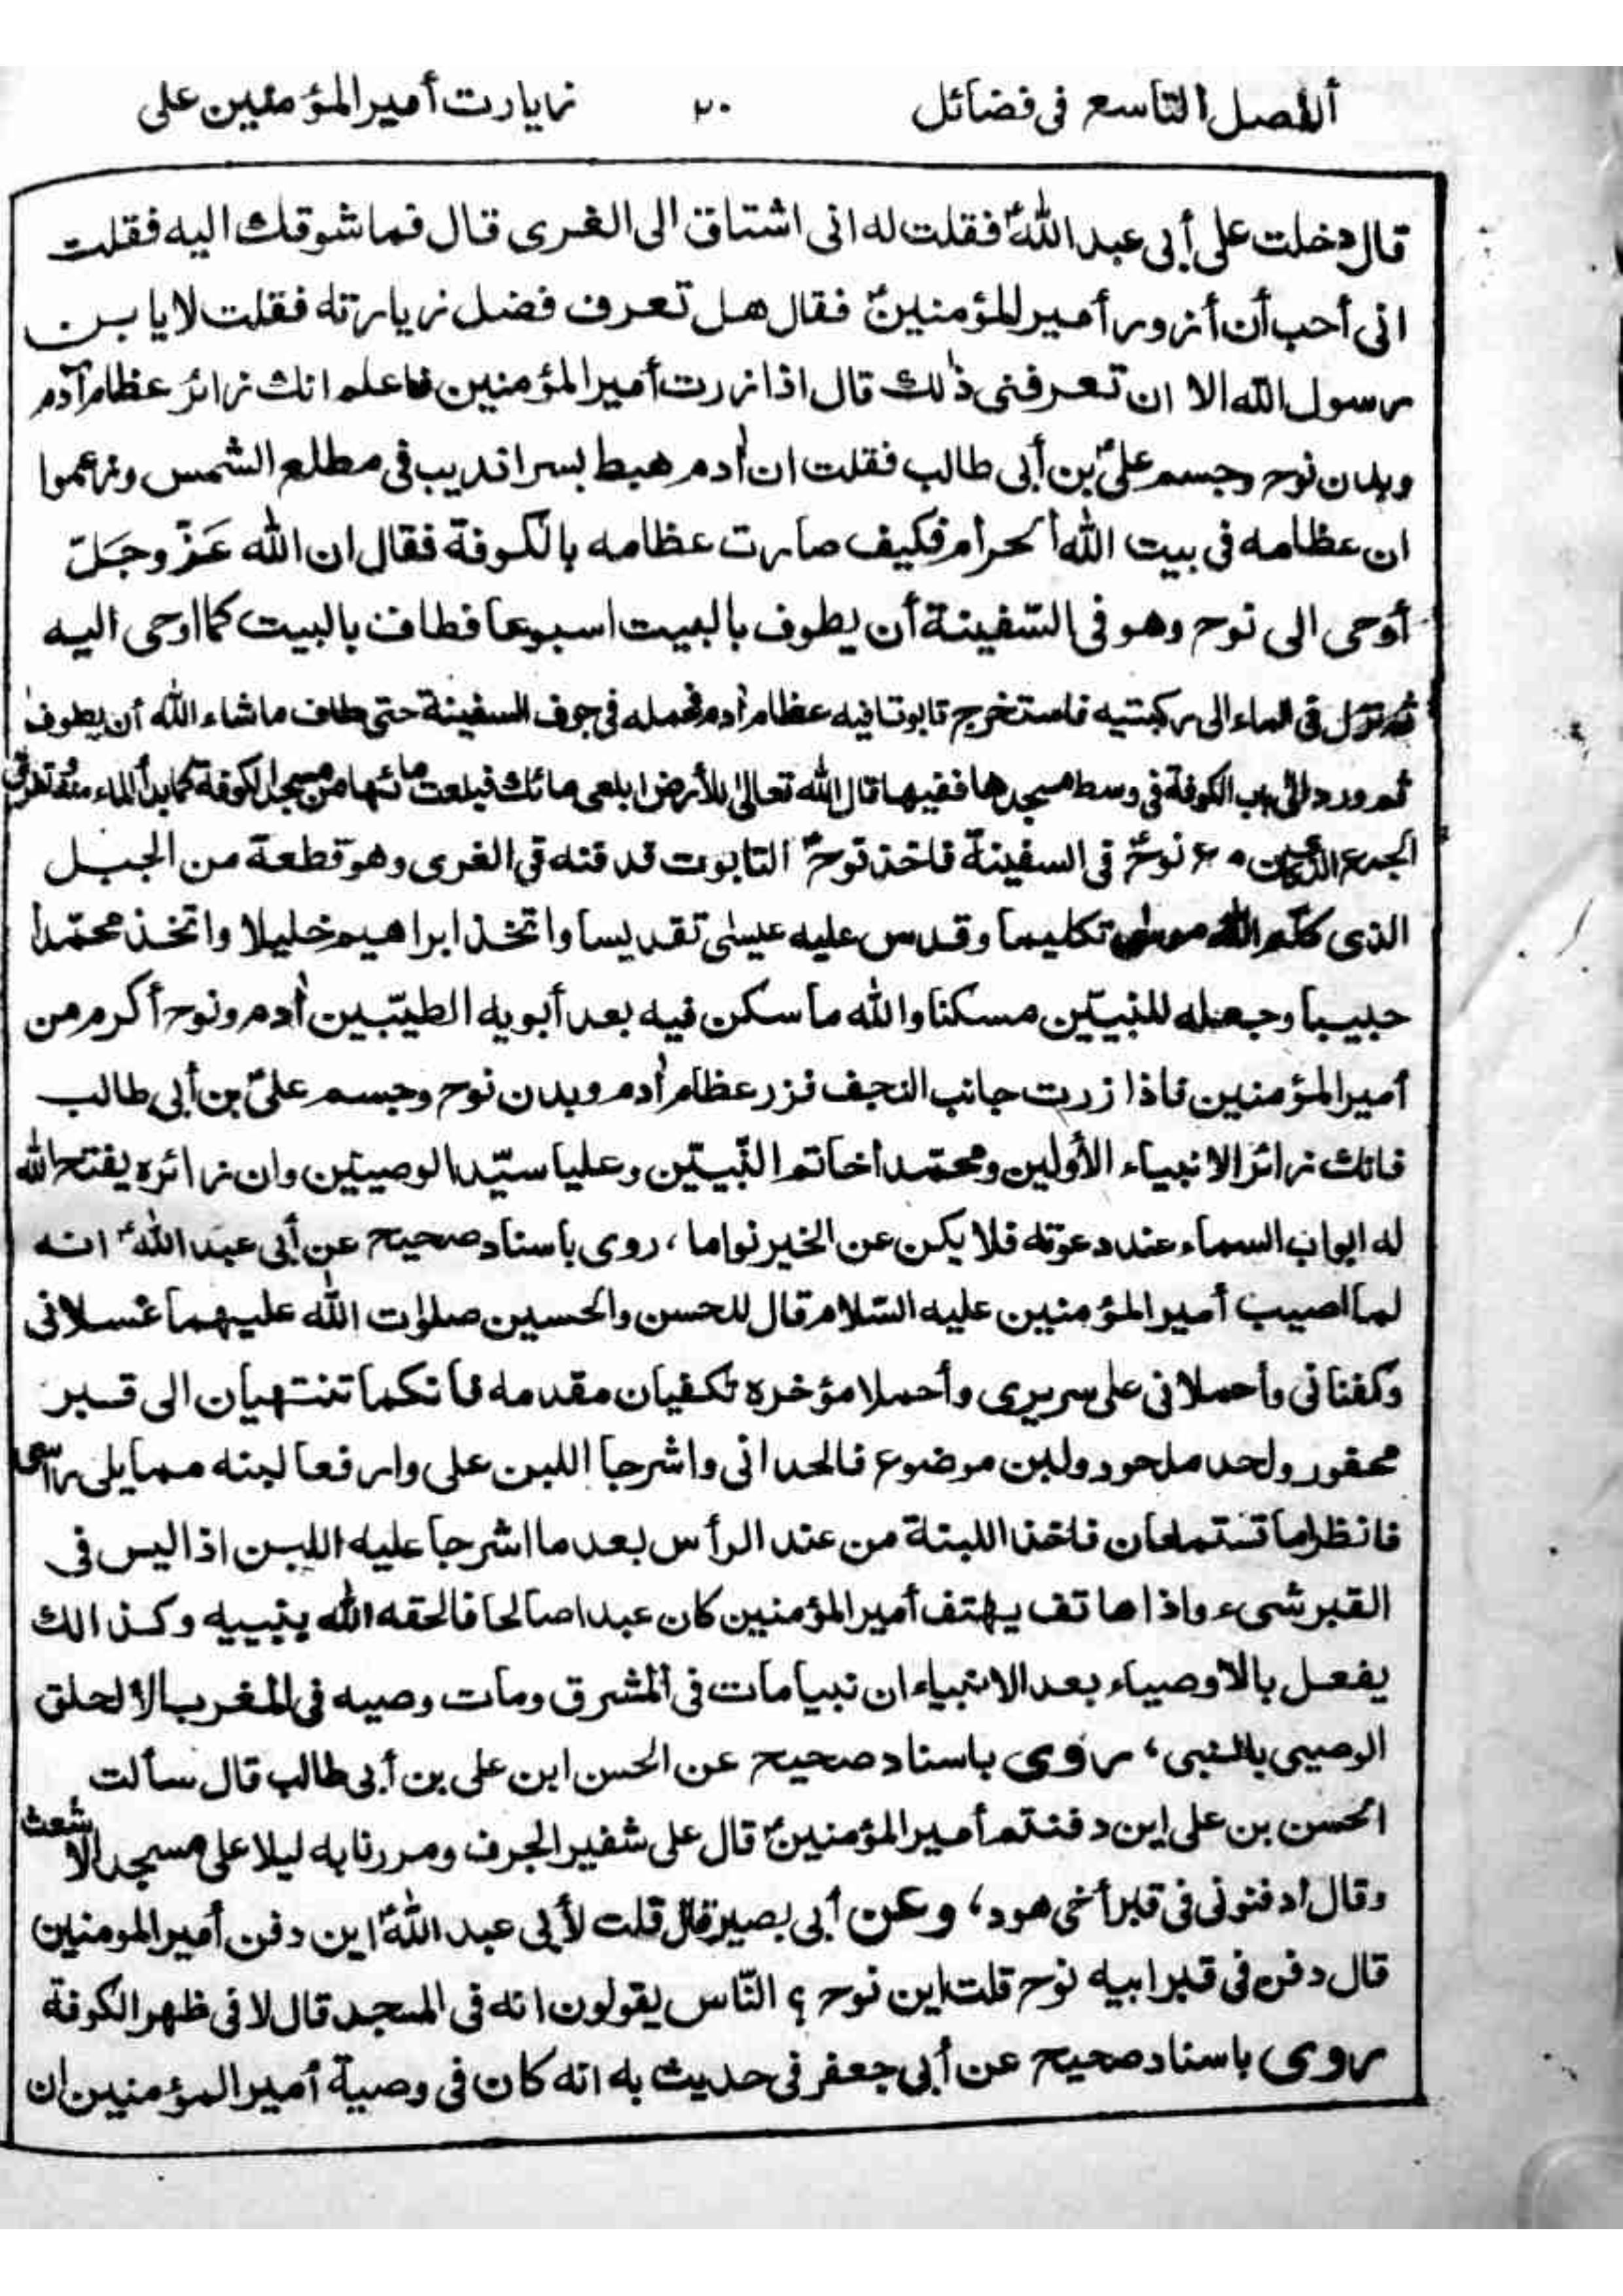 ألفصل التاسع فى فضائل ٢٠ زيارت أمير المؤمنين على
قال دخلت على أبى عبد اللهؑ فقلت له انى اشتاق الى الغرى قال فما شوقك اليه فقلت
انى أحب أن أزور أمير المؤمنينؑ فقال هل تعرف فضل زيارته فقلت لا يا بن
رسول الله الا ان تعرفنى ذٰلك قال اذا زرت أمير المؤمنين فاعلم انك زائر عظام آدم
وبدن نوح وجسم علىؑ بن أبى طالب فقلت ان أدم هبط بسراندیب فى مطلع الشمس وزعموا
ان عظامه فى بيت الله ألحرام فكيف صارت عظامه بالكوفة فقال ان الله عَزّ وجَلّ
أوحى الى نوح وهو فى السّفينة أن يطوف بالبيت اسبوعا فطاف بالبيت كما اوحى اليه
ثم نزل فى الماء الى ركبتيه فاستخرج تابوتا فيه عظام أدم فحمله فى جوف السفينة حتى طاف ماشاء الله أن يطوف
ثم ورد الى باب الكوفة فى وسط مسجدها ففيها قال الله تعالىٰ للأرض ابلعى مائك فبلعت مائها من مسجد الكوفة كما بدأ الماء منه وتفرق
الجمع نوحؑ فى السفينة فاخذ نوحؑ التابوت فدفنه فى الغرى وهو قطعة من الجبل
الذى كلّم الله موسٰى تكليما وقدس عليه عيسىٰ تقديسا واتخذ ابراهيم خليلا واتخذ محمّدا
حبيبا وجعله للنبيّين مسكنا والله ما سكن فيه بعد أبويه الطيّبين أدم ونوح أكرم من
أمير المؤمنين فاذا زرت جانب النجف فزر عظام أدم وبدن نوح وجسم علىّ بن أبى طالب
فانك زائر الانبياء الأولين ومحمّدا خاتم النّبيّين وعليا سيّد الوصيين وان زائره يفتح الله
له ابواب السماء عند دعوته فلا يكن عن الخير نواما ، روى باسناد صحيح عن أبى عبد اللهؑ انه
لما اصيب أمير المؤمنين عليه السّلام قال للحسن والحسين صلوات الله عليهما غسلانى
وكفنانى وأحملانى على سريرى وأحملا مؤخره تكفيان مقدمه فانكما تنتهيان الى قبر
محفور ولحد ملحود ولبن موضوع فالحدانى واشرجا اللبن على وارفعا لبنه مما يلى رأسى
فانظرا ما تستمعان فاخذا اللبنة من عند الرأس بعد ما اشرجا عليه اللبن اذا ليس فى
القبر شىء واذا هاتف يهتف أمير المؤمنين كان عبدا صالحا فالحقه الله بنبيه وكذالك
يفعل بالاوصياء بعد الانبياء ان نبيا مات فى المشرق ومات وصيه فى المغرب الالحلق
الوصيى بالنبى ، روى باسناد صحيح عن الحسن ابن على بن أبى طالب قال سألت
الحسن بن على اين دفنتم أمير المؤمنينؑ قال على شفير الجرف ومررنا به ليلا على مسجد الاشعث
وقال ادفنونى فى قبر أخى هود ، وعن أبى بصير قال قلت لأبى عبد اللهؑ اين دفن أمير المومنين
قال دفن فى قبر ابيه نوح قلت اين نوح ؟ النّاس يقولون انه فى المسجد قال لا فى ظهر الكوفة
روى باسناد صحيح عن أبى جعفر فى حديث به انه كان فى وصية أمير المؤمنين ان